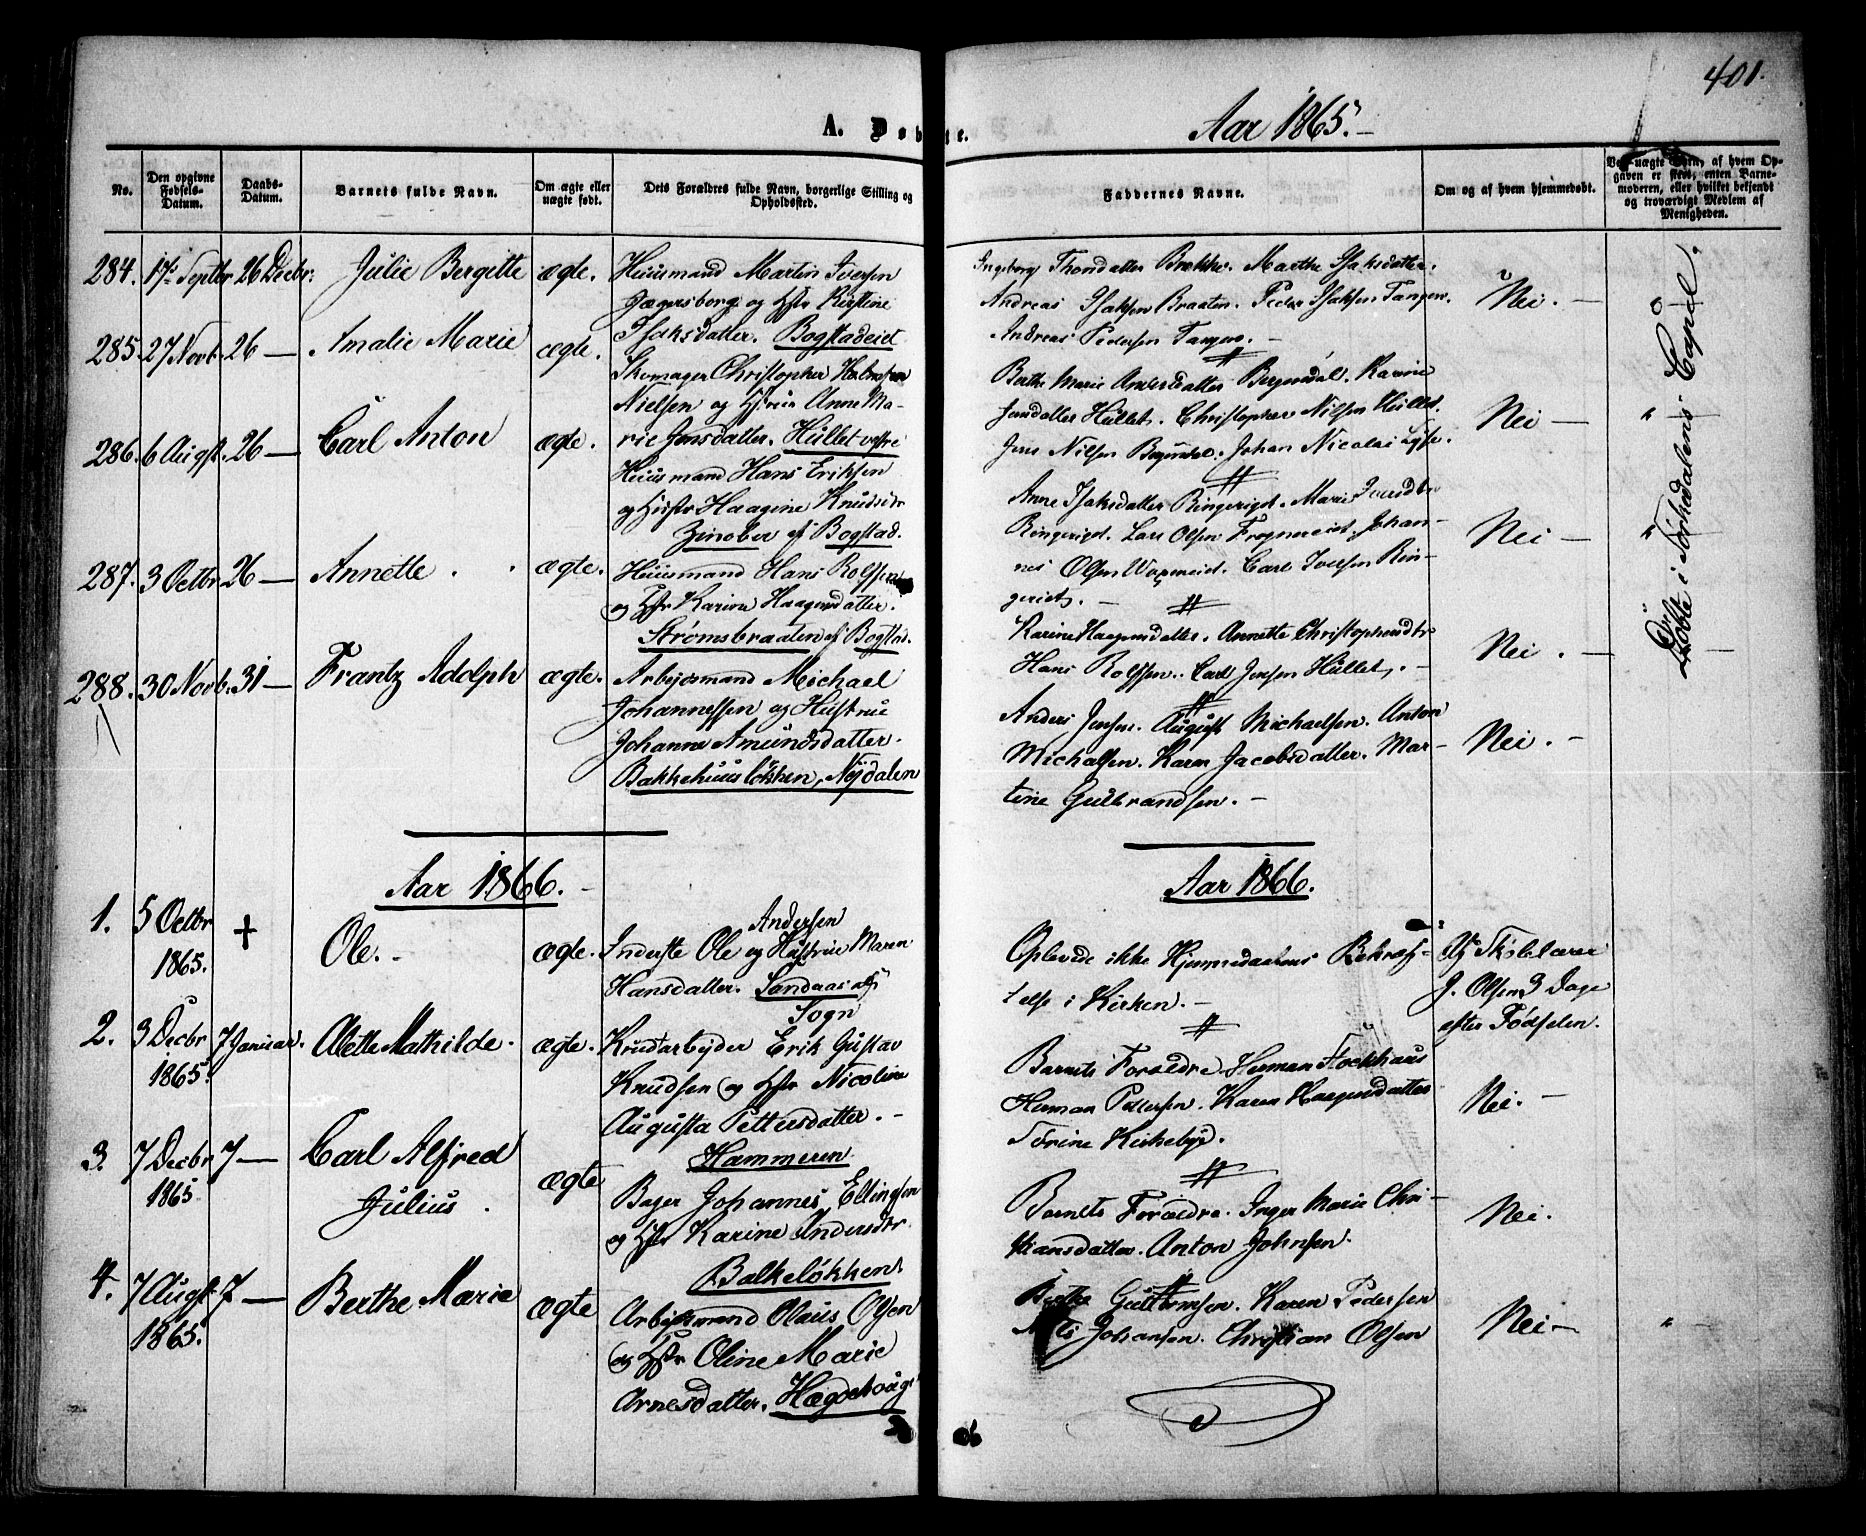 401.
A. Døbte.
Aar 1865.
No.
Den opgivne Fødsels-Datum.
Daabs-Datum.
Barnets fulde Navn.
Om ægte eller uægte født.
Dets Forældres fulde Navn, borgerlige Stilling og Opholdssted.
Faddernes Navne.
Om og af hvem hjemmedøbt.
Ved uægte Børn, af hvem Opgaven er skeet, enten Barnemoderen, eller hvilket bekjendt og troværdigt Medlem af Menigheden.
284. 17 Septbr 26 Decbr. Julie Bergitte ægte. Huusmand Martin Iversen
Jægersborg og Hstr Kirstine
Isaksdatter. Bogstadeid
Ingeborg Thorsdatter Brekke. Marthe Isaksdatter.
Andreas Isaksen Braaten. Peder Isaksen Tangen.
Andreas Pedersen Tangen. -
Nei. -
285. 27 Novb. 26 - Amalie Marie ægte. Skomager Christopher
Nielsen og Hstrue Anne Ma-
rie Jensdatter. Hullet vestre
Berthe Marie Andersdatter Bergendal. Karine
Jensdatter Hullet. Christopher Nilsen Hullet.
Jens Nilsen Johan Nicolai
Nei -
286. 6 Augst. 26 - Carl Anton ægte. Huusmand Hans Eriksen
og Hustr Haagine Knudsdr
Zinober af Bogstad.
Anne Isaksdatter Ringerigt. Mari
Ringerigt. Lars Olsen Johan-
nes Olsen Carl Iversen Rin-
geriet. -
Nei -
287. 3 Octbr 26 - Annette ægte. Huusmand Hans Rolfsen
og Hstr Karine Haagensdatter.
Strømsbraaten af Bogstad.
Karine Haagensdatter. Annette
Hans Rolfsen. Carl Jensen Hullet. -
Nei. -
Døbte i Sørkedalens Capel.
288. 30 Novb. 31 - Frantz Adolph ægte. Arbejdsmand Michael
Johannessen og Hustrue
Johanne Amundsdatter.
Bakkehuusløkken, Nydalen
Anders Jensen. August Michaelsen. Anton
Michalsen. Karen Jacobsdatter. Mar-
tine Gulbrandsen. -
Nei. -
Aar 1866. -
Aar 1866.
1. 5 Octbr 1865. + Ole. - ægte. Inderste Ole Andersen og Hustrue Maren
Hansdatter. Sandaas af
Sogn
Oplevede ikke Hjemmedaabens Bekræf-
telse i Kirken. -
Af Skolelærer
J. Olsen 3 Dage
efter Fødselen.
2. 3 Decbr 1865. 7 Januar. Alette Mathilde. ægte. Krudtarbejder Erik Gustav
Knudsen og Hstr Nicoline
Augusta Pettersdatter. -
Hammeren
Barnets Forældre. Herman Stockhaus
Herman Pedersen. Karen Haagensdatter
Torine Kirkeby.
Nei. -
3. 7 Decbr 1865 7 - Carl Alfred
Julius ægte Bager Johannes Ellingsen
og Hstr Karine Andersdtr.
Balkeløkken
Barnets Forældre. Inger Marie Chri-
stiansdatter. Anton Johnsen.
Nei.
4. 7 Augst 1865. 7 - Berthe Marie ægte Arbejdsmand Olaus Olsen
og Hstr Oline Marie
Arnesdatter. Hægdehoug
Karen Pedersen
Nils Johansen. Christian Olsen
Nei - " -